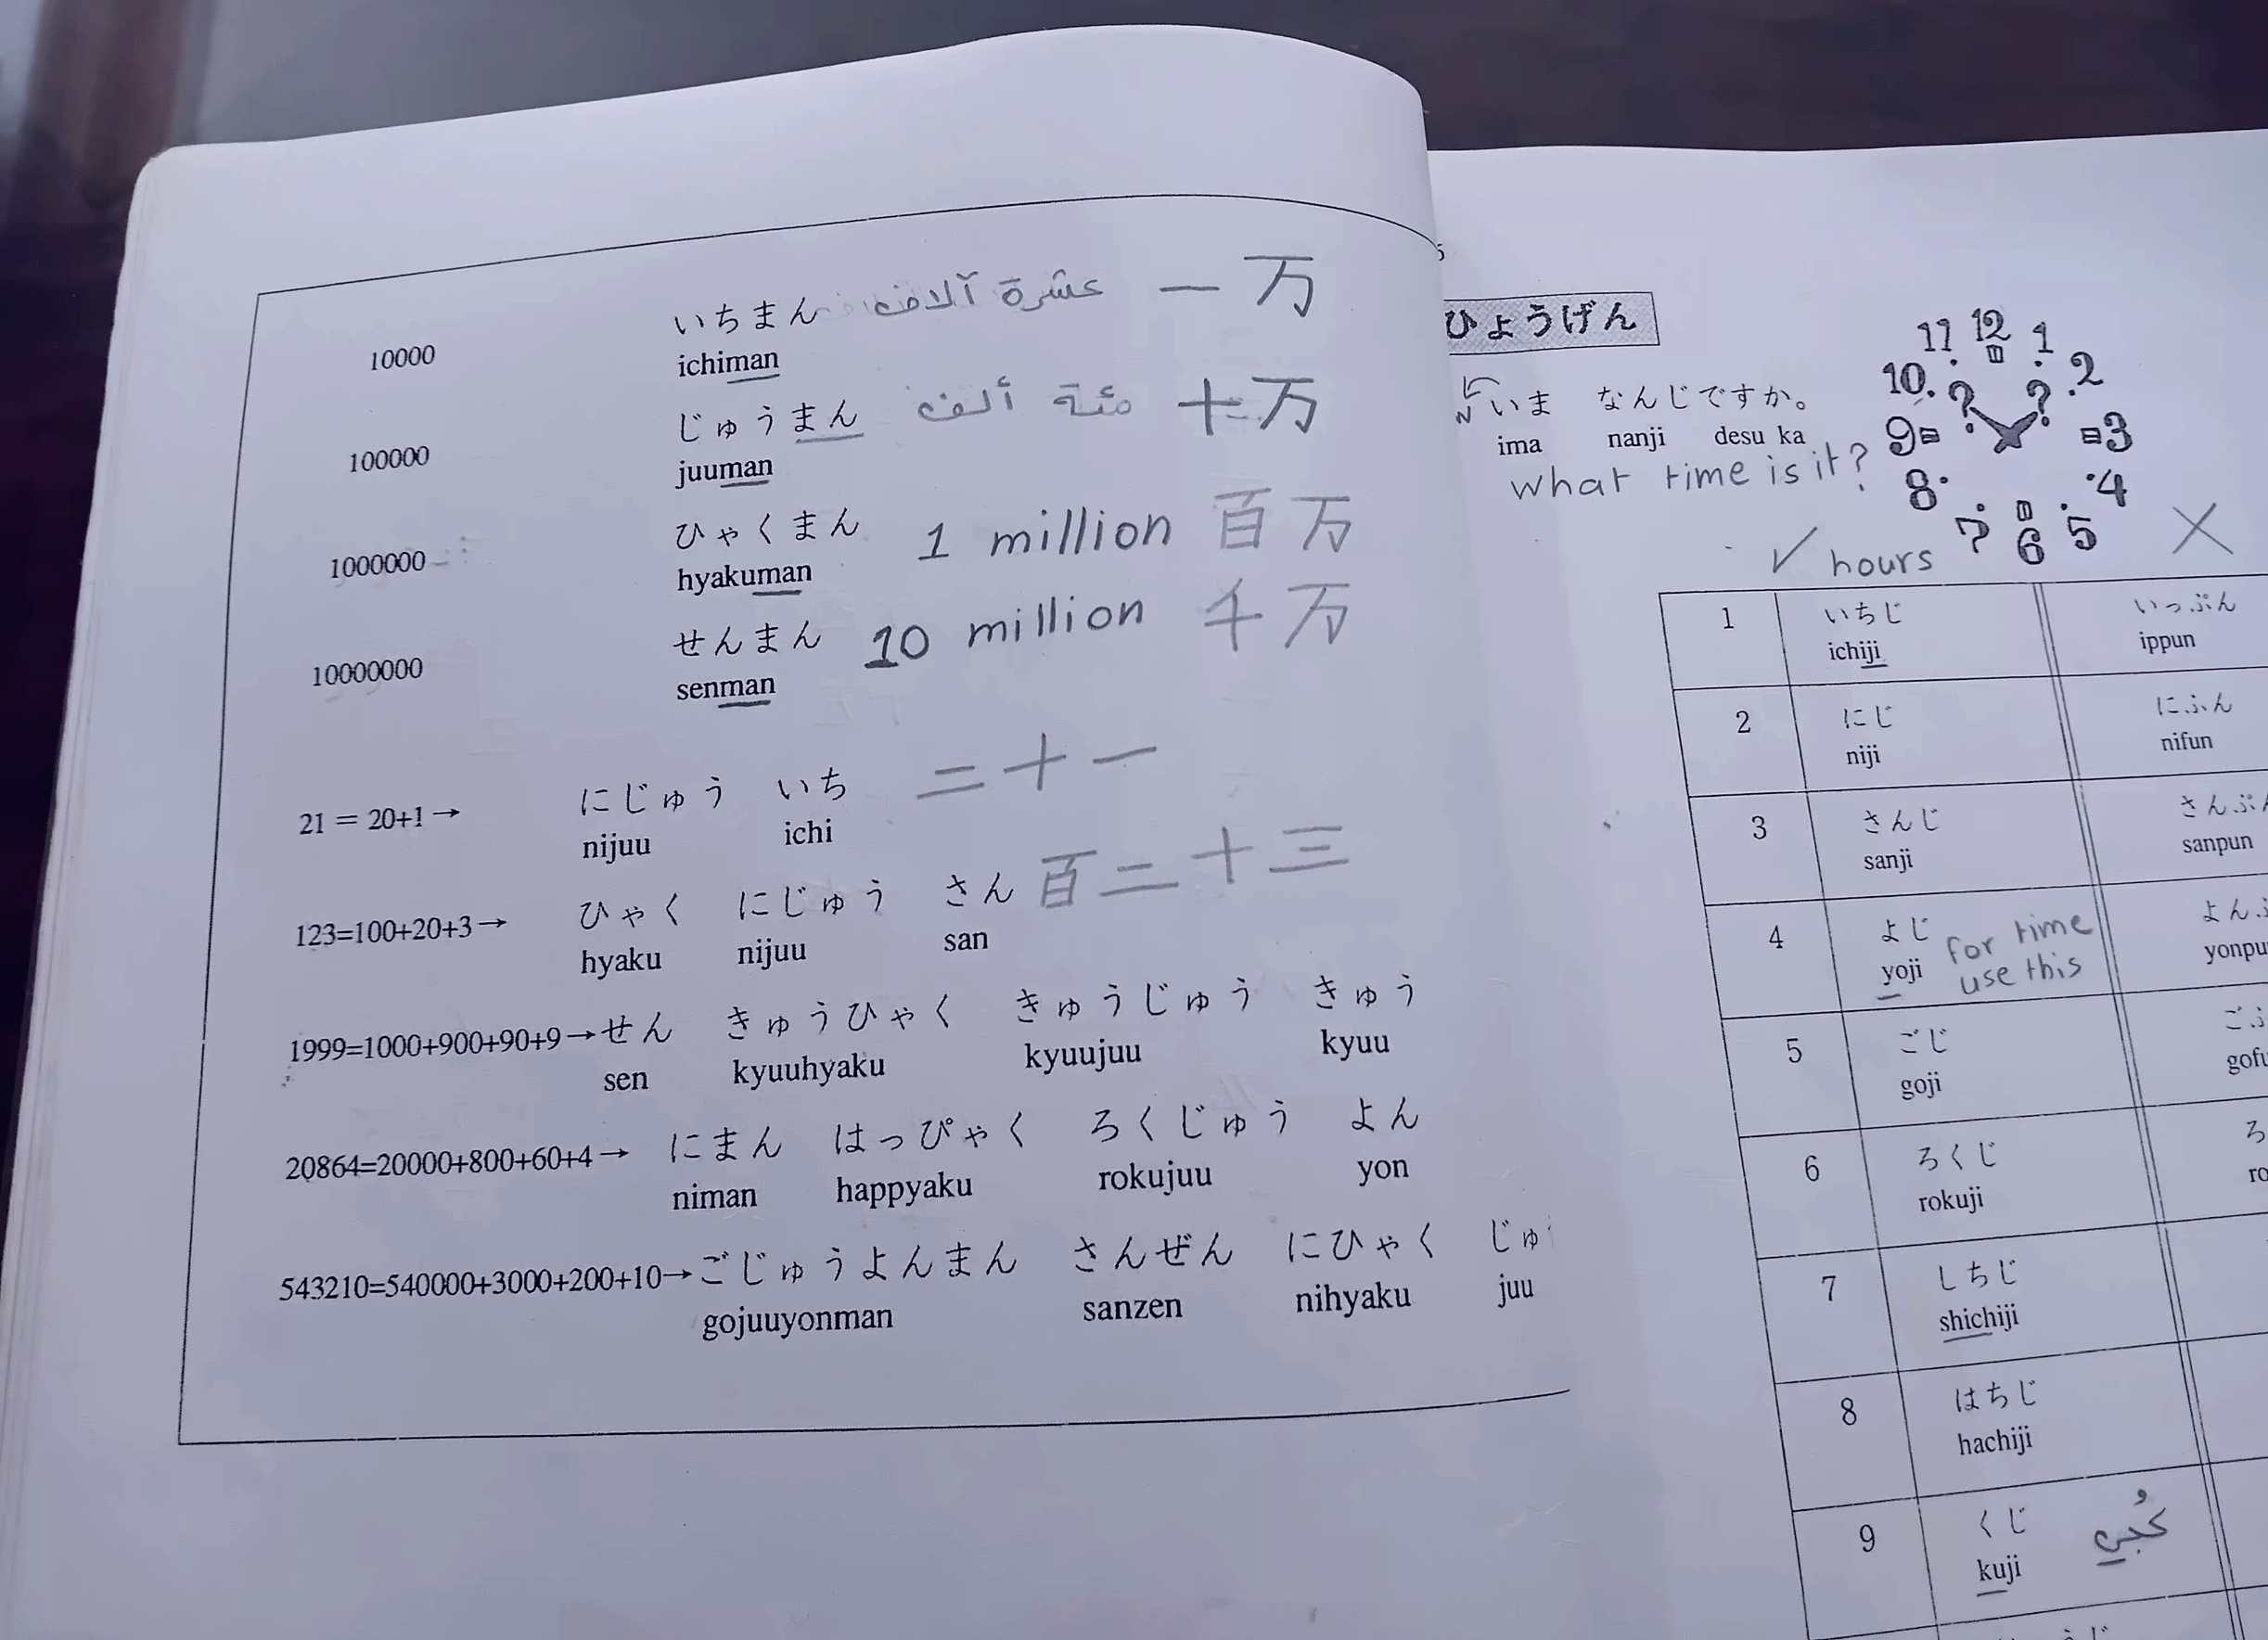 10000 いちまん عشرة آلاف 一万
ichiman
100000 じゅうまん مئة ألف 十万
juuman
1000000 ひゃくまん 1 million 百万
hyakuman
10000000 せんまん 10 million 千万
senman
21 = 20+1→ にじゅう いち 二十一
nijuu ichi
123=100+20+3→ ひゃく にじゅう さん 百二十三
hyaku nijuu san
1999=1000+900+90+9→せん きゅうひゃく きゅうじゅう きゅう
sen kyuuhyaku kyuujuu kyuu
20864=20000+800+60+4→ にまん はっぴゃく ろくじゅう よん
niman happyaku rokujuu yon
543210=540000+3000+200+10→ごじゅうよんまん さんぜん にひゃく じゅ
gojuuyonman sanzen nihyaku juu
ひょうげん
いま なんじですか。
ima nanji desu ka
what time is it?
11 12 1
10 2
9 3
8 4
7 6 5
✓ hours X
1 いちじ いっぷん
ichiji ippun
2 にじ にふん
niji nifun
3 さんじ さんぷん
sanji sanpun
4 よじ for time よん
yoji use this yonpu
5 ごじ ごふ
goji gofu
6 ろくじ ろ
rokuji ro
7 しちじ
shichiji
8 はちじ
hachiji
9 くじ كُجي
kuji